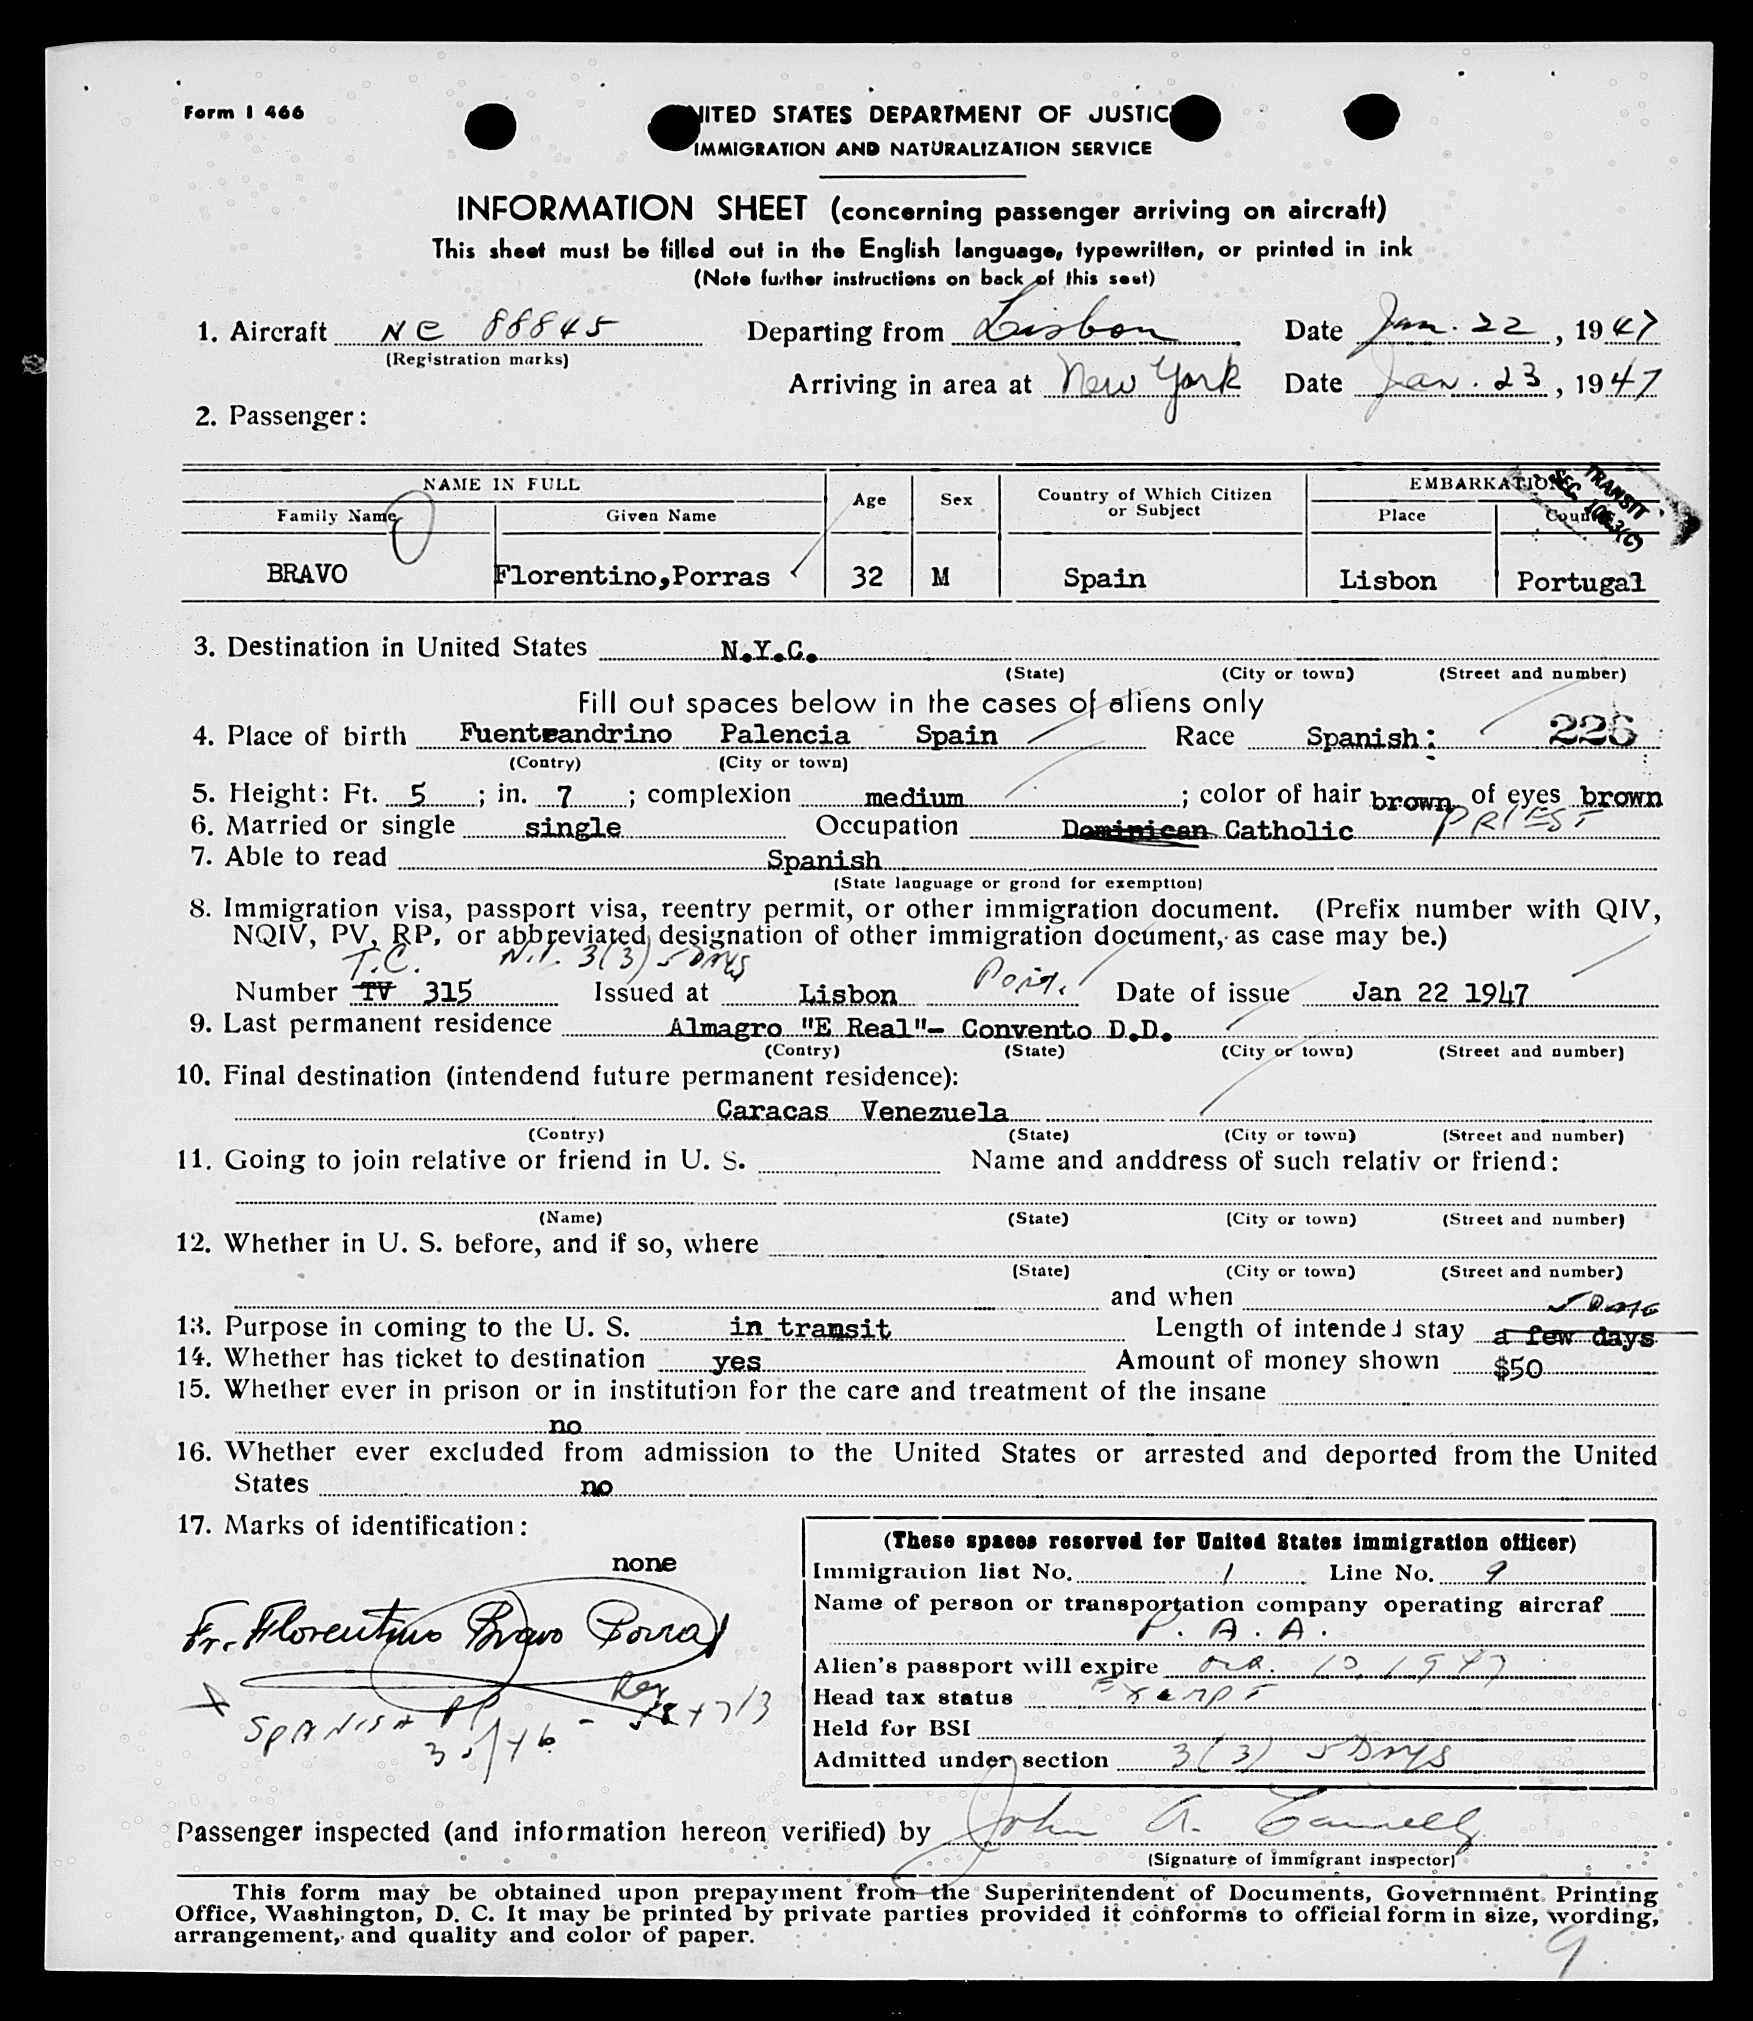 Form I 466
UNITED STATES DEPARTMENT OF JUSTICE
IMMIGRATION AND NATURALIZATION SERVICE
INFORMATION SHEET (concerning passenger arriving on aircraft)
This sheet must be filled out in the English language, typewritten, or printed in ink
(Note further instructions on back of this seet)
1. Aircraft NC 88845 Departing from Lisbon Date Jan. 22, 1947
(Registration marks)
Arriving in area at New York Date Jan. 23, 1947
2. Passenger:
TRANSIT
SEC.
NAME IN FULL Age Sex Country of Which Citizen or Subject EMBARKATION
Family Name Given Name Place Country
BRAVO Florentino,Porras 32 M Spain Lisbon Portugal
3. Destination in United States N.Y.C.
(State) (City or town) (Street and number)
Fill out spaces below in the cases of aliens only
4. Place of birth Fuenteandrino Palencia Spain Race Spanish: 226
(Contry) (City or town)
5. Height: Ft. 5; in. 7; complexion medium; color of hair brown of eyes brown
6. Married or single single Occupation Dominican Catholic PRIEST
7. Able to read Spanish
(State language or grond for exemption)
8. Immigration visa, passport visa, reentry permit, or other immigration document. (Prefix number with QIV,
NQIV, PV, RP, or abbreviated designation of other immigration document, as case may be.)
T.C. 3(3) 5 DAYS
Number TV 315 Issued at Lisbon Port. Date of issue Jan 22 1947
9. Last permanent residence Almagro "E Real"- Convento D.D.
(Contry) (State) (City or town) (Street and number)
10. Final destination (intendend future permanent residence):
Caracas Venezuela
(Contry) (State) (City or town) (Street and number)
11. Going to join relative or friend in U. S. Name and anddress of such relativ or friend:
(Name) (State) (City or town) (Street and number)
12. Whether in U. S. before, and if so, where
(State) (City or town) (Street and number)
and when
5 DAYS
13. Purpose in coming to the U. S. in transit Length of intended stay a few days
14. Whether has ticket to destination yes Amount of money shown $50
15. Whether ever in prison or in institution for the care and treatment of the insane
no
16. Whether ever excluded from admission to the United States or arrested and deported from the United
States no
17. Marks of identification:
none
Fr. Florentino Bravo Porras
SPANISH PP
(These spaces reserved for United States immigration officer)
Immigration list No. 1 Line No. 9
Name of person or transportation company operating aircraf
P. A. A.
Alien's passport will expire 10, 1947
Head tax status Exempt
Held for BSI
Admitted under section 3(3) 5 DAYS
Passenger inspected (and information hereon verified) by John A.
(Signature of immigrant inspector)
This form may be obtained upon prepayment from the Superintendent of Documents, Government Printing
Office, Washington, D. C. It may be printed by private parties provided it conforms to official form in size, wording,
arrangement, and quality and color of paper.
9